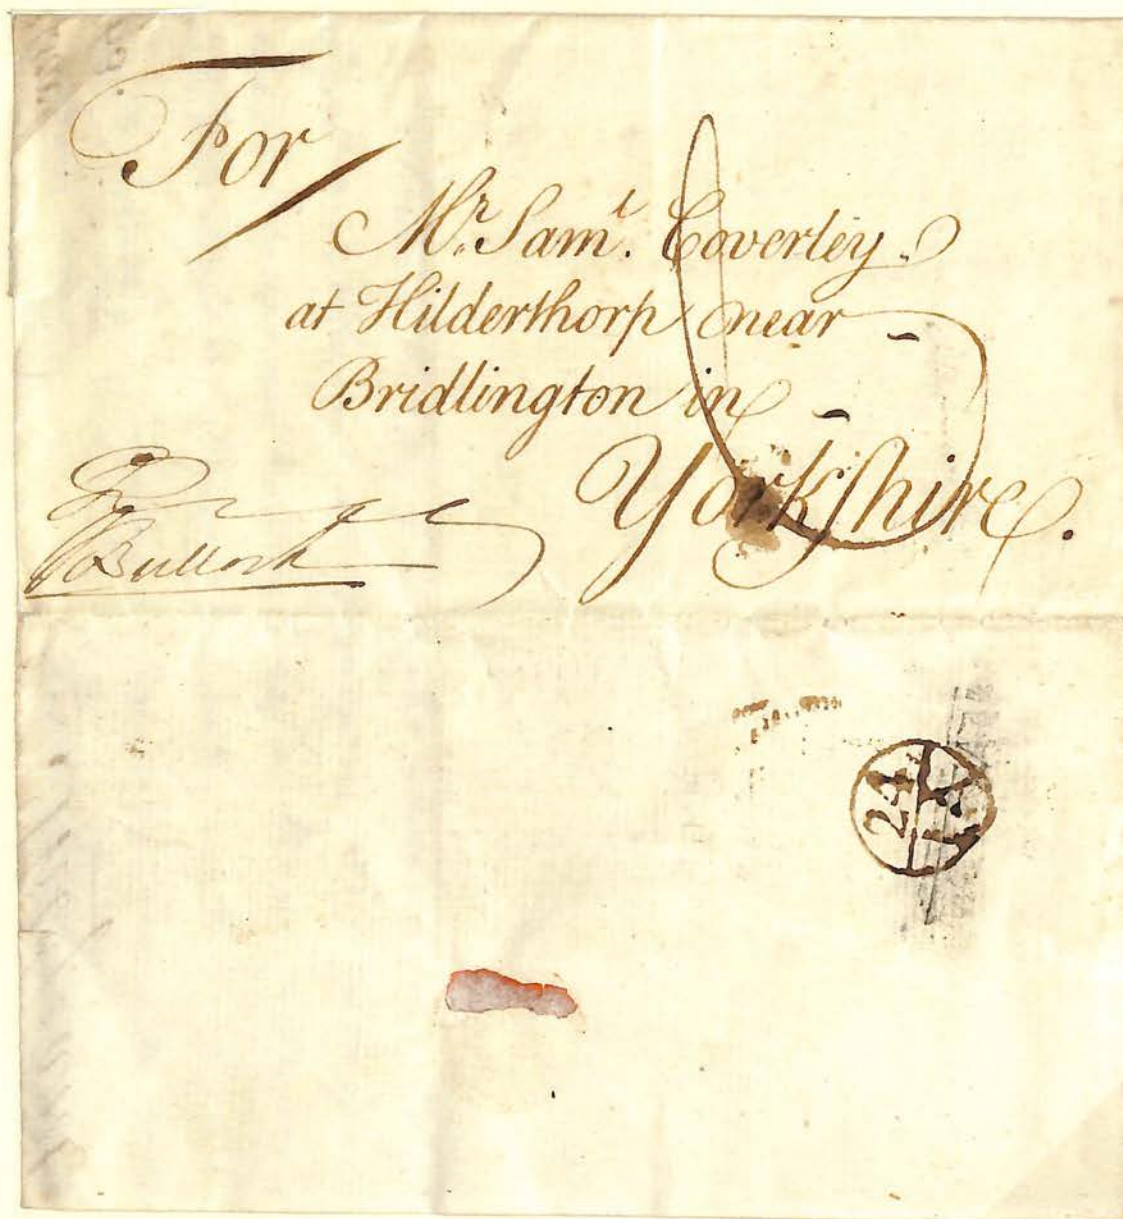 For
Mr. Saml. Coverley
at Hilderthorp near
Bridlington in
Yorkshire.
Bullock
24
IA